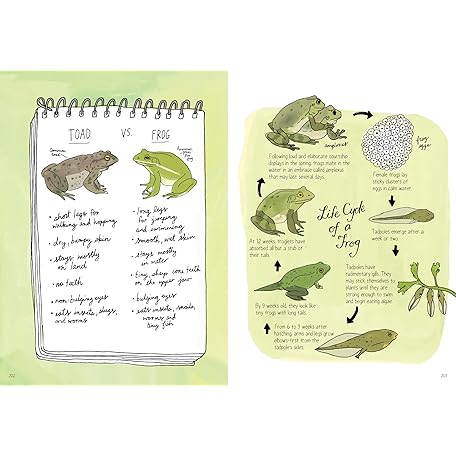 TOAD VS. FROG
common toad
American green tree frog
• short legs for
walking and hopping
• dry, bumpy skin
• stays mostly
on land
• no teeth
• non-bulging eyes
• eats insects, slugs,
and worms
• long legs
for jumping
and swimming
• smooth, wet skin
• stays mostly
in water
• tiny, sharp cone teeth
on the upper jaw
• bulging eyes
• eats insects, snails,
worms and
tiny fish
202
Life Cycle
of a
Frog
amplexus
Following loud and elaborate courtship
displays in the spring, frogs mate in the
water in an embrace called amplexus
that may last several days.
frog
eggs
Female frogs lay
sticky clusters of
eggs in calm water.
Tadpoles emerge after
a week or two.
Tadpoles have
rudimentary gills. They
may stick themselves to
plants until they are
strong enough to swim
and begin eating algae.
From 6 to 9 weeks after
hatching, arms and legs grow
elbows-first from the
tadpole's sides.
By 9 weeks old, they look like
tiny frogs with long tails.
At 12 weeks, froglets have
absorbed all but a stub of
their tails.
203